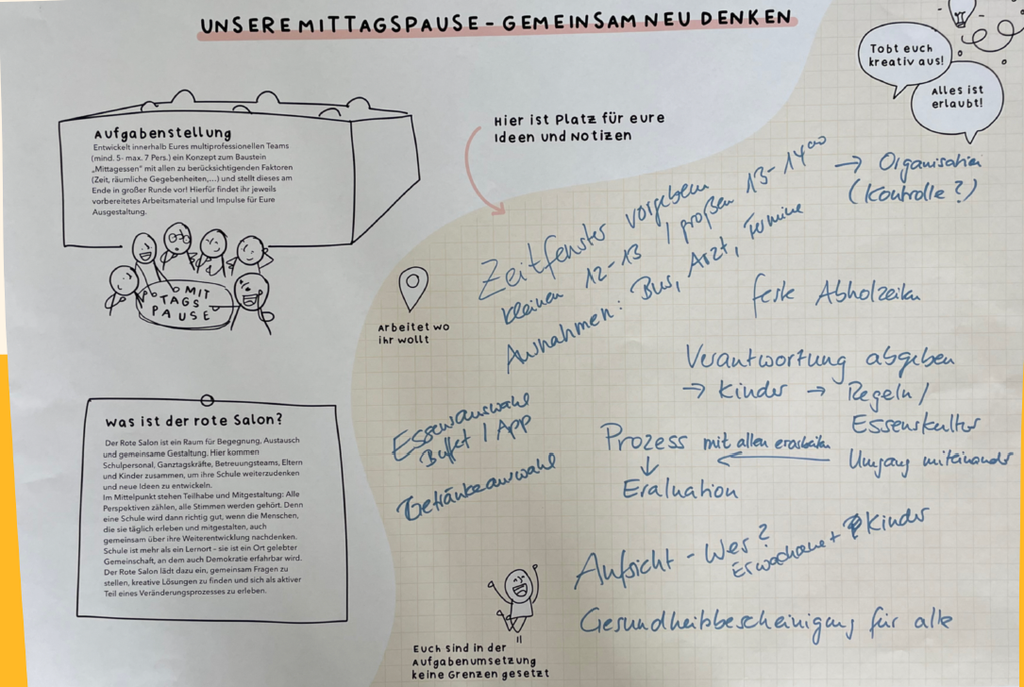 UNSERE MITTAGSPAUSE - GEMEINSAM NEU DENKEN
Tobt euch
kreativ aus!
Alles ist
erlaubt!
Aufgabenstellung
Entwickelt innerhalb Eures multiprofessionellen Teams
(mind. 5- max. 7 Pers.) ein Konzept zum Baustein
„Mittagessen" mit allen zu berücksichtigenden Faktoren
(Zeit, räumliche Gegebenheiten,...) und stellt dieses am
Ende in großer Runde vor! Hierfür findet ihr jeweils
vorbereitetes Arbeitsmaterial und Impulse für Eure
Ausgestaltung.
MIT
TAGS
PAUSE
Hier ist Platz für eure
Ideen und Notizen
Arbeitet wo
ihr wollt
Zeitfenster vorgeben
kleinen 12-13 / großen 13-14⁰⁰
→ Organisation
(Kontrolle?)
Ausnahmen: Bus, Arzt, Termine
feste Abholzeiten
Verantwortung abgeben
→ Kinder → Regeln /
Essenskultur
Umgang miteinander
Essenauswahl
Buffet / App
Getränkeauswahl
Prozess mit allen erarbeiten
↓
Evaluation
Aufsicht - Wer?
Erwachsene + Kinder
Gesundheitsbescheinigung für alle
Was ist der rote Salon?
Der Rote Salon ist ein Raum für Begegnung, Austausch
und gemeinsame Gestaltung. Hier kommen
Schulpersonal, Ganztagskräfte, Betreuungsteams, Eltern
und Kinder zusammen, um ihre Schule weiterzudenken
und neue Ideen zu entwickeln.
Im Mittelpunkt stehen Teilhabe und Mitgestaltung: Alle
Perspektiven zählen, alle Stimmen werden gehört. Denn
eine Schule wird dann richtig gut, wenn die Menschen,
die sie täglich erleben und mitgestalten, auch
gemeinsam über ihre Weiterentwicklung nachdenken.
Schule ist mehr als ein Lernort – sie ist ein Ort gelebter
Gemeinschaft, an dem auch Demokratie erfahrbar wird.
Der Rote Salon lädt dazu ein, gemeinsam Fragen zu
stellen, kreative Lösungen zu finden und sich als aktiver
Teil eines Veränderungsprozesses zu erleben.
Euch sind in der
Aufgabenumsetzung
keine Grenzen gesetzt